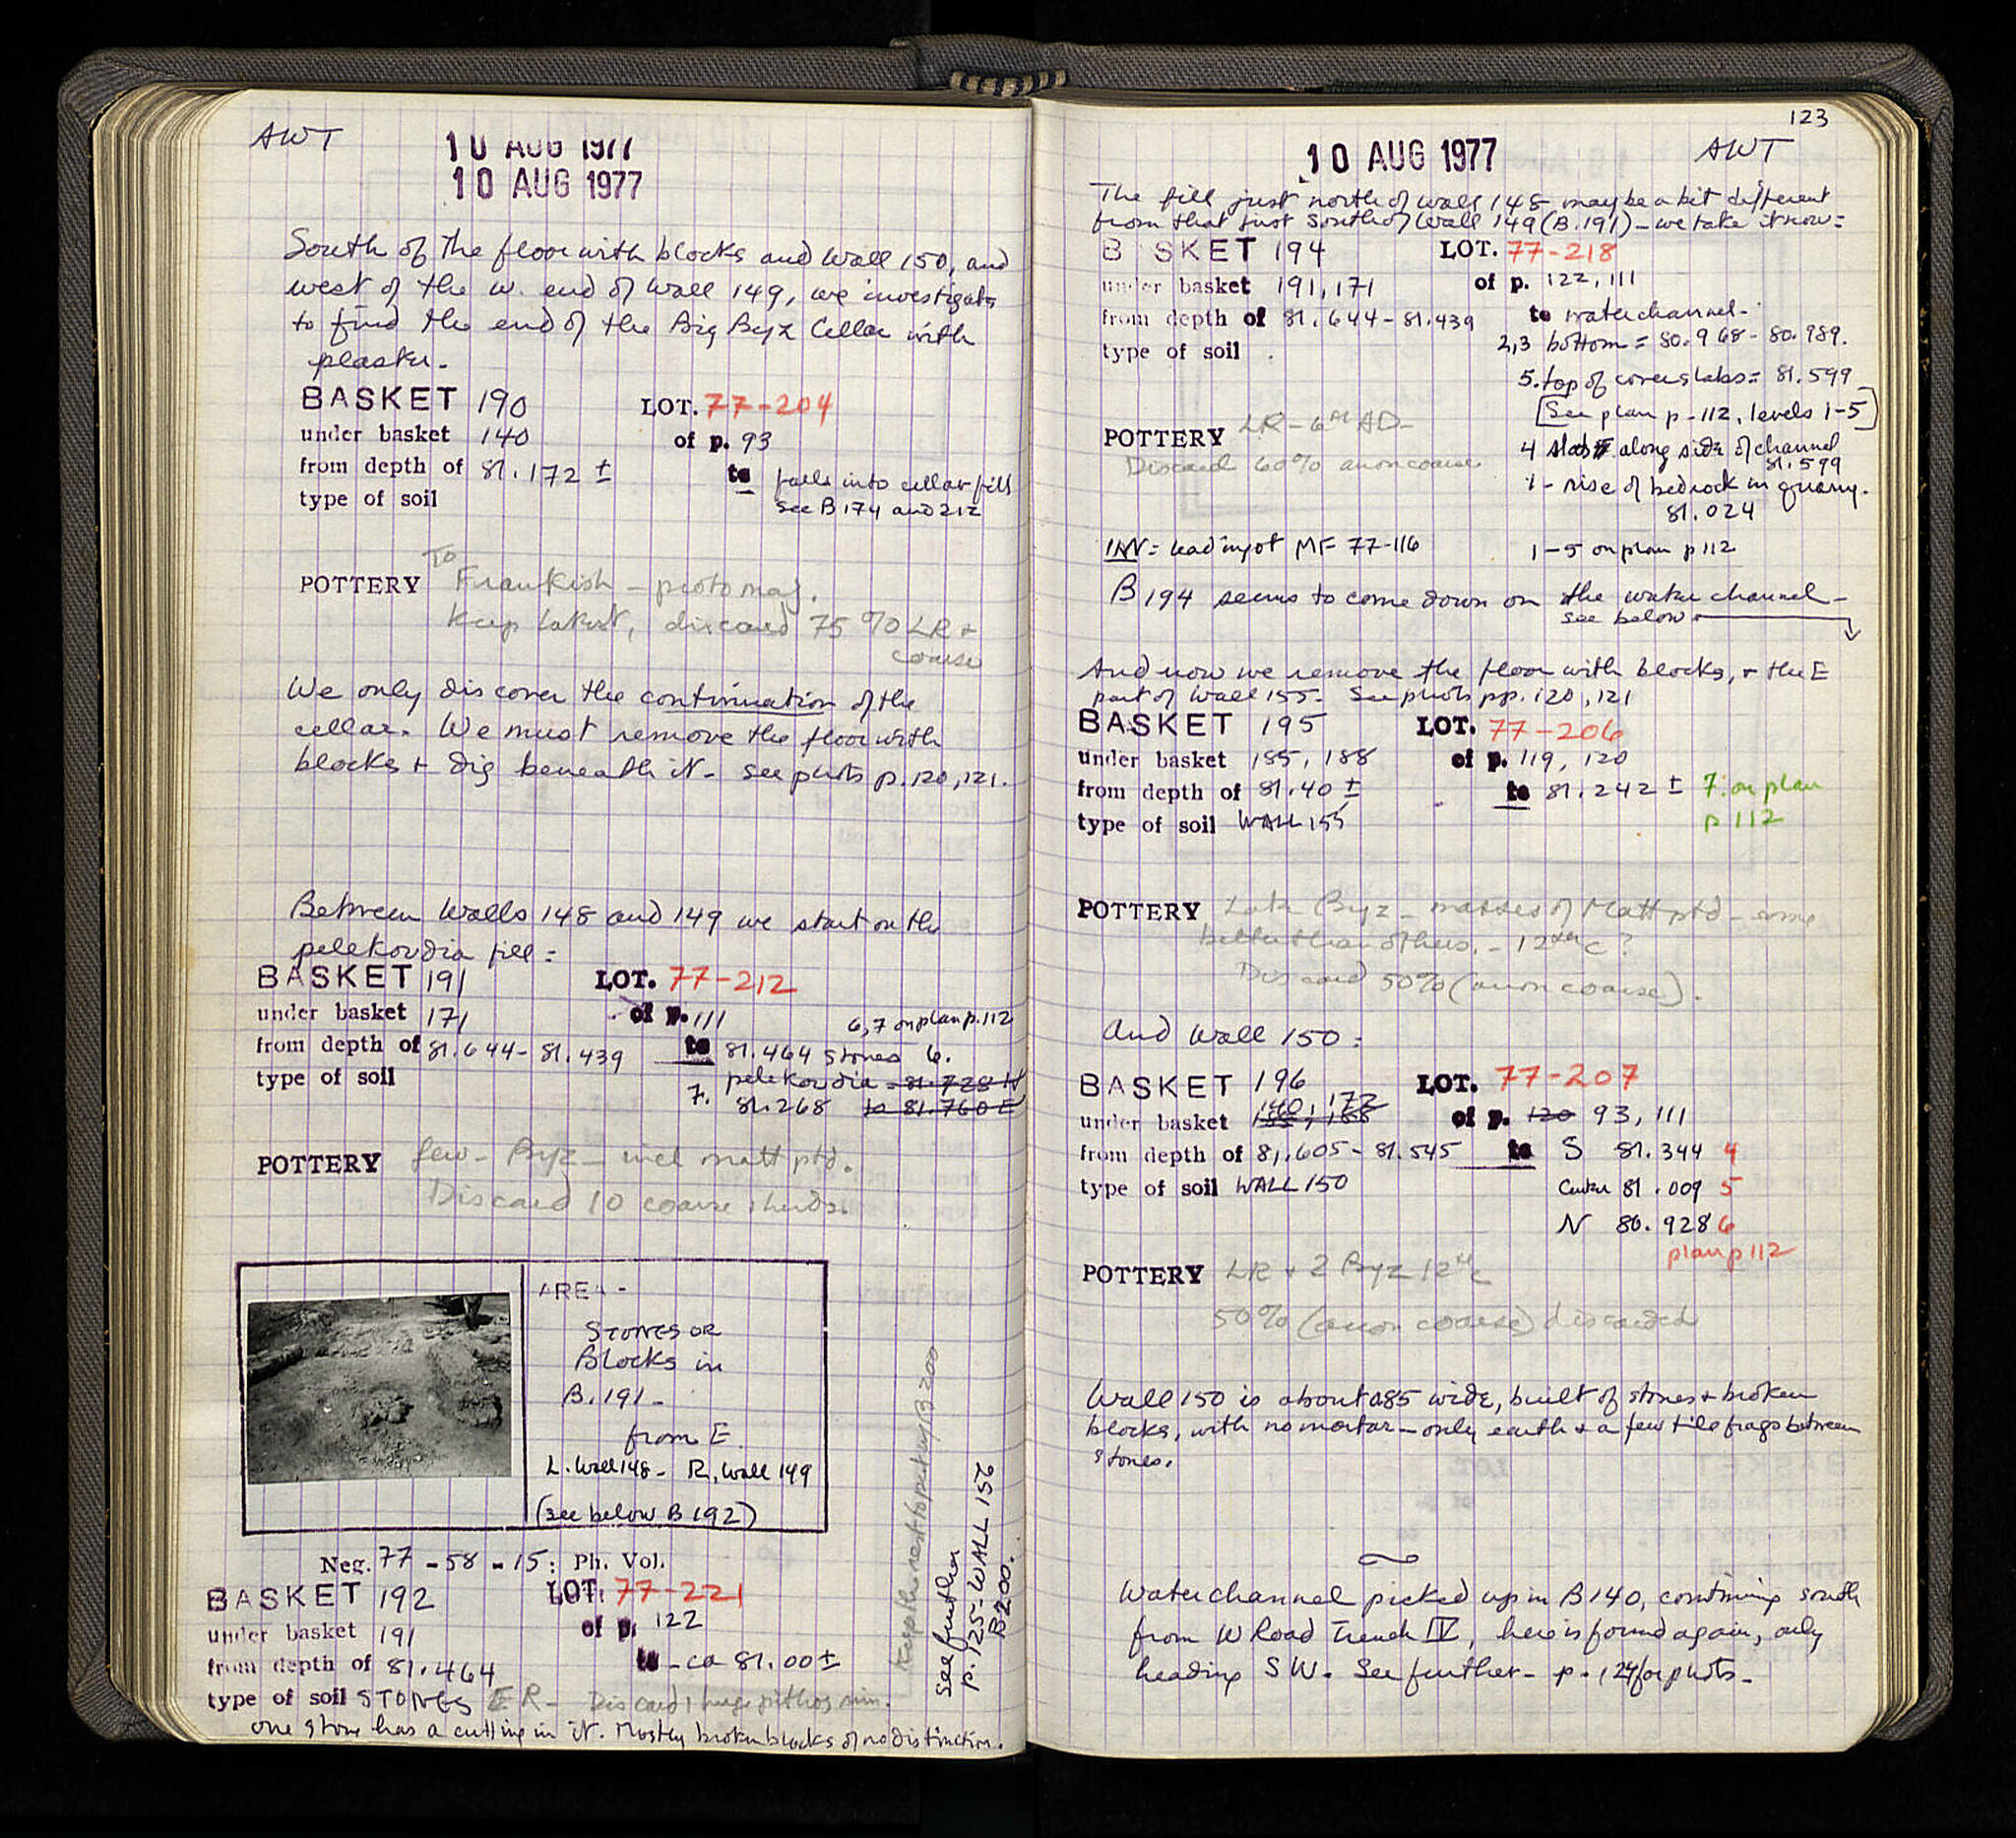 AWT
10 AUG 1977
10 AUG 1977
South of the floor with blocks and Wall 150, and
west of the w. end of Wall 149, we investigate
to find the end of the Big Byz Cellar with
plaster.
BASKET 190 LOT. 77-204
under basket 140 of p. 93
from depth of 81.172 ± to falls into cellar fill
type of soil see B 174 and 212
POTTERY To Frankish - protomaj.
Keep latest, discard 75% LR +
coarse
We only discover the continuation of the
cellar. We must remove the floor with
blocks + dig beneath it - see photos p. 120, 121.
Between Walls 148 and 149 we start on the
pelekoudia fill:
BASKET 191 LOT. 77-212
under basket 171 of p. 111 6,7 on plan p. 112
from depth of 81.644 - 81.439 to 81.464 stones 6.
type of soil pelekoudia 81.728 W
7. 81.268 to 81.760 E
POTTERY few - Byz - incl matt ptd.
Discard 10 coarse sherds.
AREA -
STONES OR
Blocks in
B. 191 -
from E
L. Wall 148 - R. Wall 149
(see below B 192)
Neg. 77 - 58 - 15: Ph. Vol.
BASKET 192 LOT: 77-221
under basket 191 of p. 122
from depth of 81.464 to - ca 81.00 ±
type of soil STONES ER - Discard 1 huge pithos rim.
one stone has a cutting in it. Mostly broken blocks of no distinction.
Keep the rest to pottery B 200
see further
p. 125 - WALL 156
B 200.
123
10 AUG 1977 AWT
The fill just north of Wall 148 may be a bit different
from that just south of Wall 149 (B. 191) - we take it now:
B SKET 194 LOT. 77-218
under basket 191, 171 of p. 122, 111
from depth of 81.644 - 81.439 to waterchannel -
type of soil 2,3 bottom = 80.968 - 80.989.
5. top of cover slabs = 81.599
[See plan p. 112, levels 1-5]
POTTERY LR - 6th AD -
Discard 60% anon coarse
4 slabs along side of channel
81.599
1 - rise of bedrock in quarry.
81.024
INV: lead ingot MF 77-116 1-5 on plan p 112
B 194 seems to come down on the water channel -
see below
And now we remove the floor with blocks, + the E
part of Wall 155 - See photos pp. 120, 121
BASKET 195 LOT. 77-206
under basket 185, 188 of p. 119, 120
from depth of 81.40 ± to 81.242 ± 7: on plan
type of soil WALL 155 p 112
POTTERY Late Byz - masses of Matt ptd - some
better than others. - 12th c?
Discard 50% (anon coarse).
And Wall 150:
BASKET 196 LOT. 77-207
under basket 140, 172 of p. 120 93, 111
from depth of 81.605 - 81.545 to S 81.344 4
type of soil WALL 150 Center 81.009 5
N 80.928 6
plan p 112
POTTERY LR + 2 Byz 12th c
50% (anon coarse) discarded
Wall 150 is about 0.85 wide, built of stones + broken
blocks, with no mortar - only earth + a few tile frags between
stones.
Waterchannel picked up in B 140, continuing south
from W Road Trench IV, here is found again, only
heading SW. See further - p. 124 for photos -